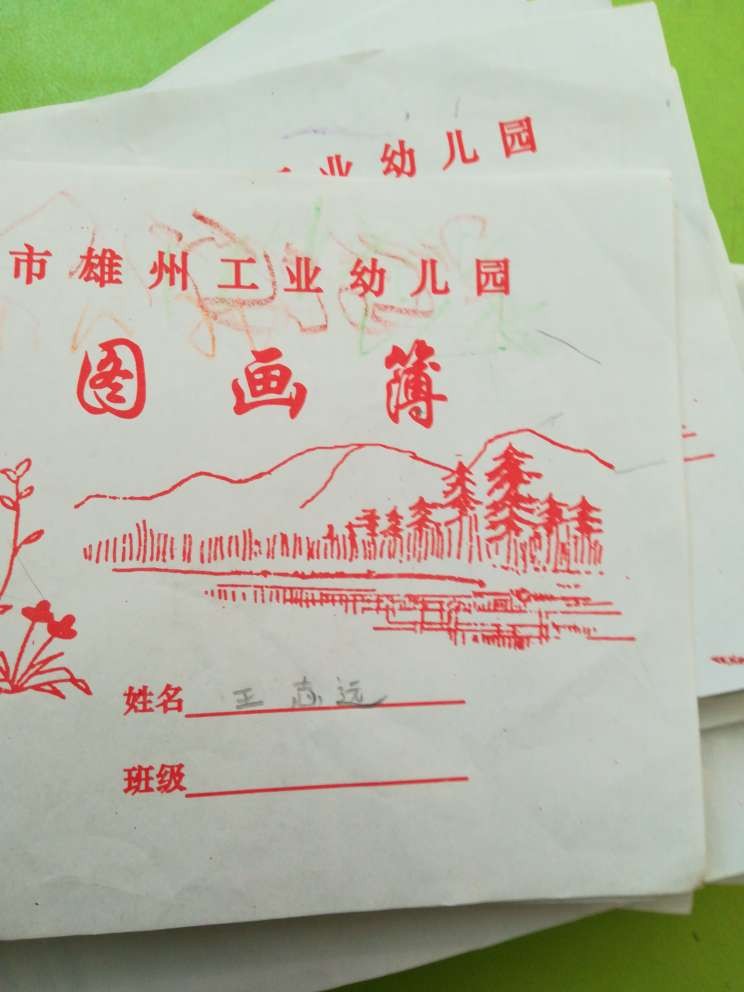 工业幼儿园
市雄州工业幼儿园
图画簿
姓名 王志远
班级